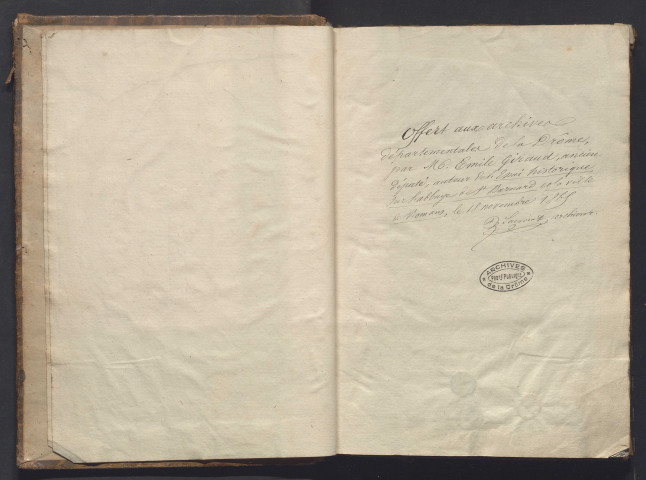 Offert aux archives
départementales de la Drôme,
par Mr. Emile Giraud, ancien
député, auteur de l'Essai historique
sur l'abbaye de St Barnard et la ville
de Romans, le 18 novembre
archiviste.
ARCHIVES
de la Drôme